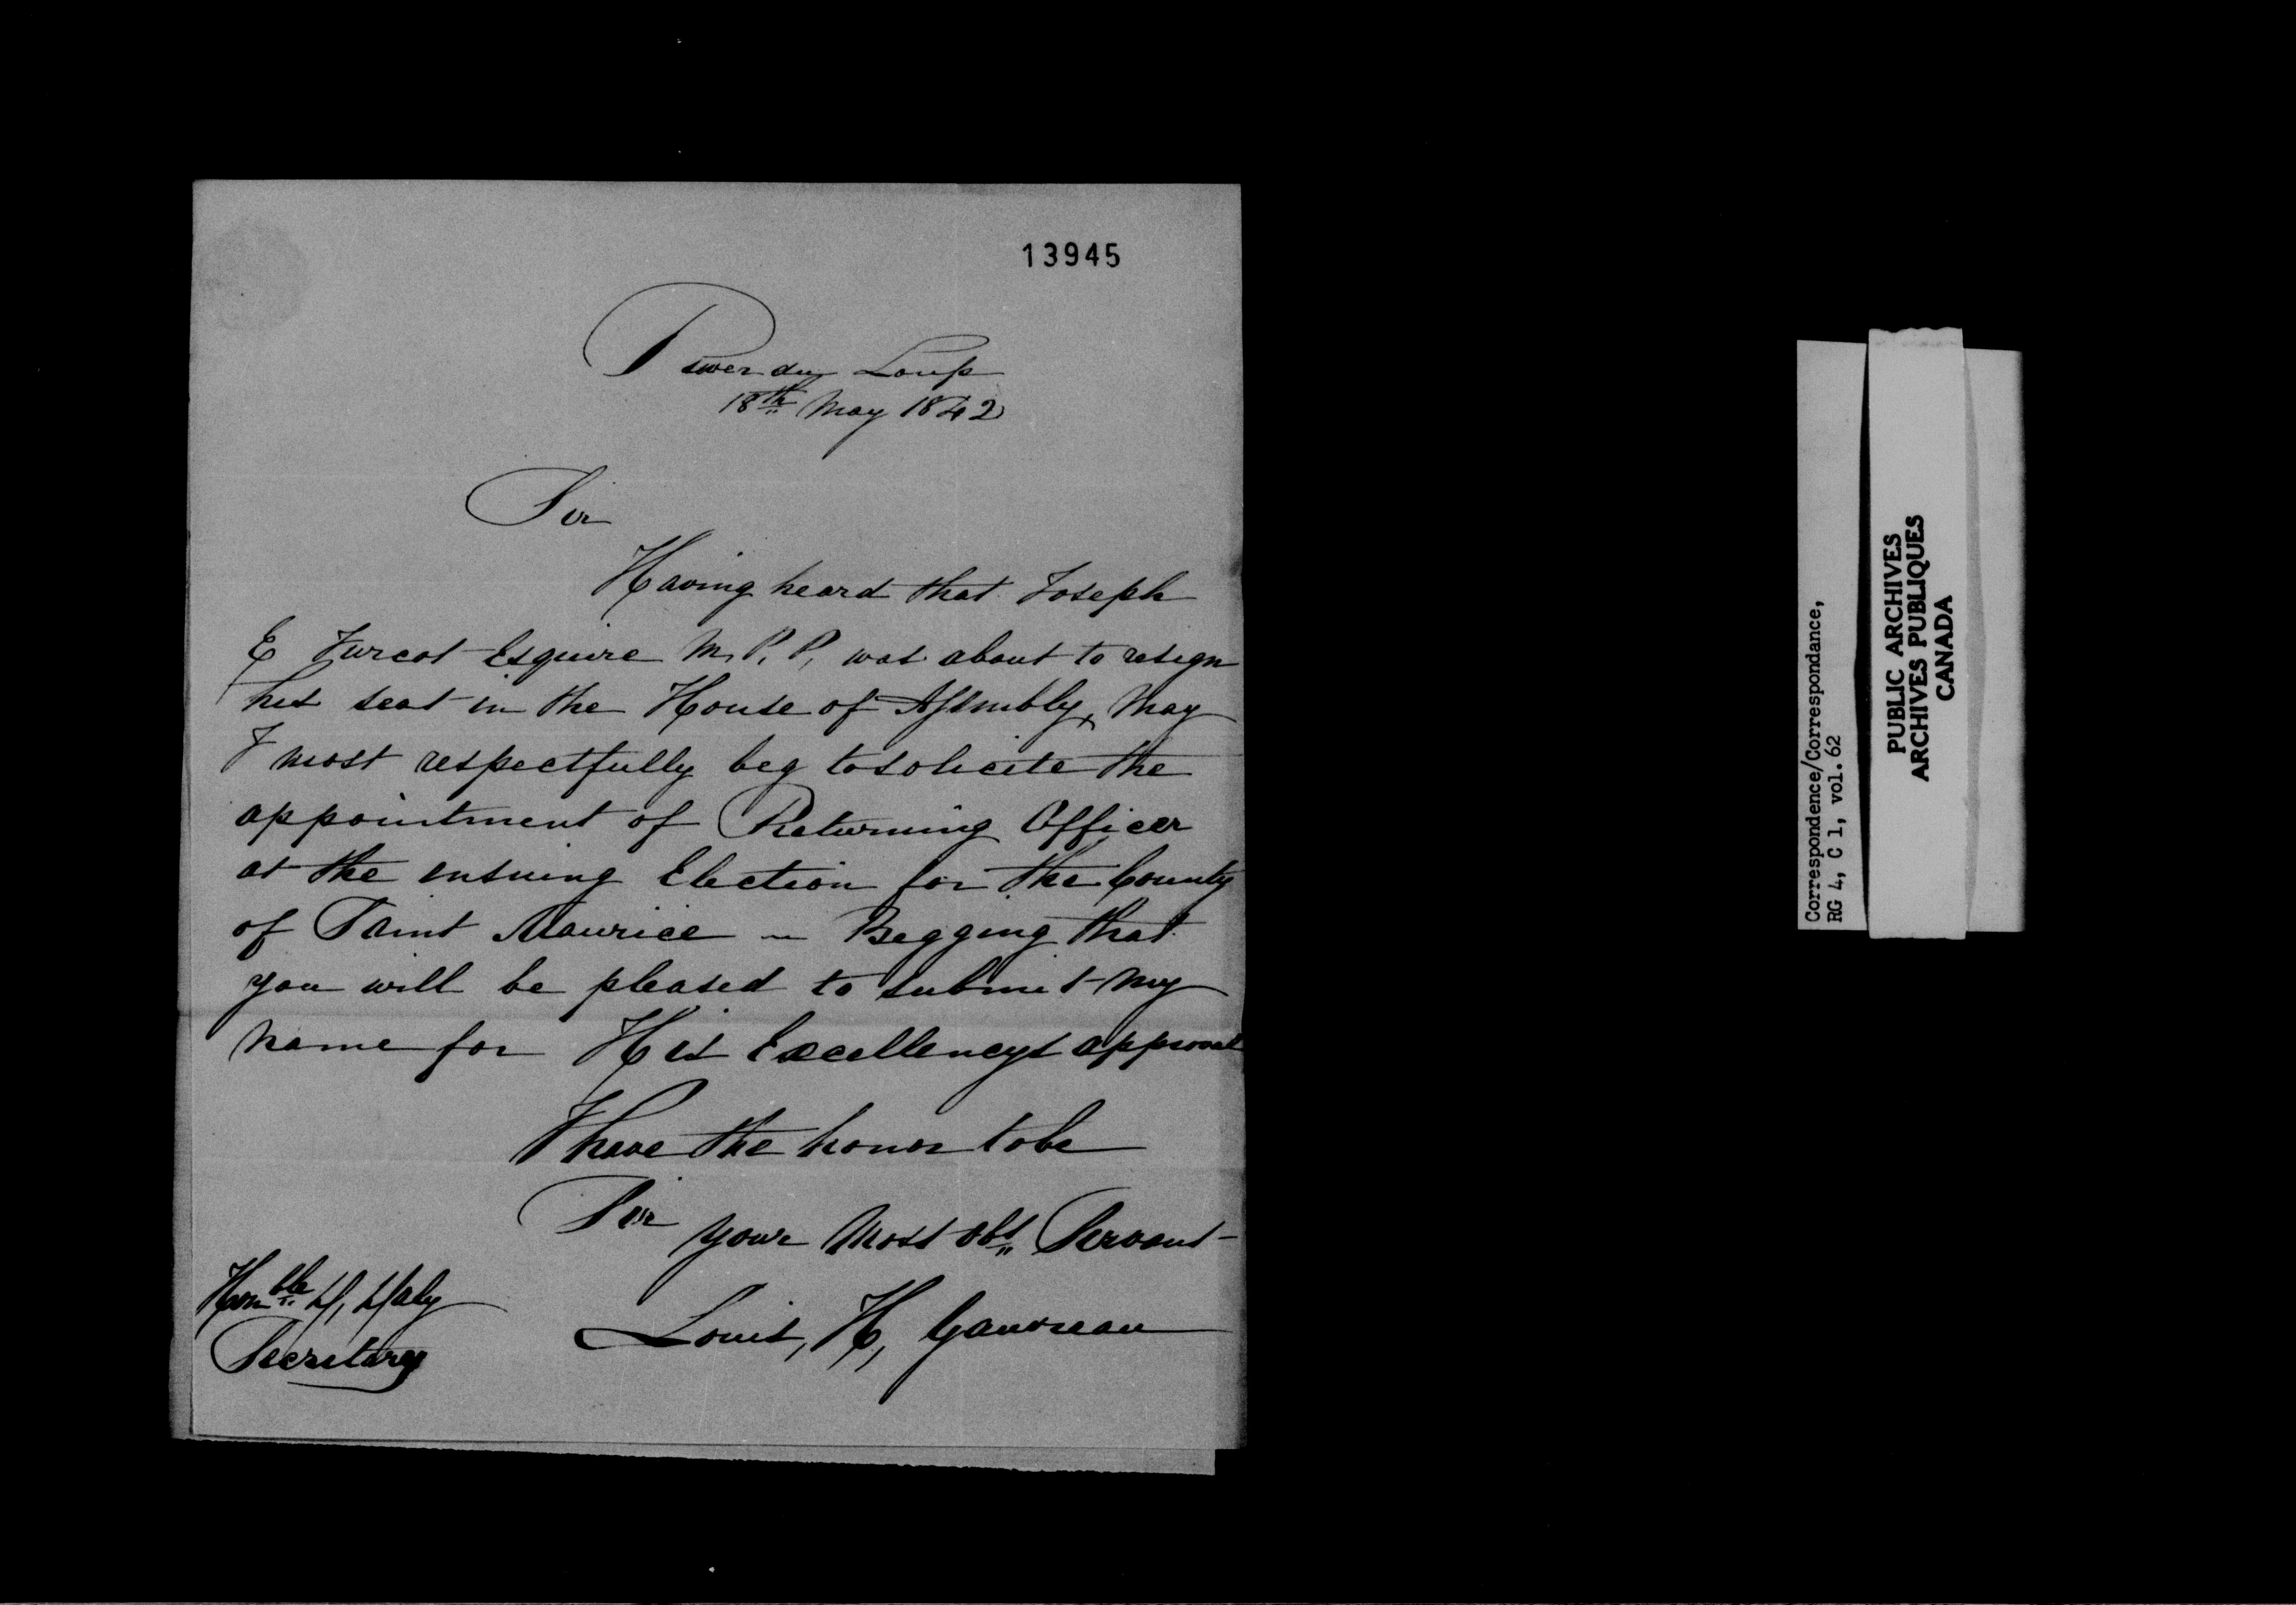 13945
River du Loup
18th May 1842
Sir
Having heard that Joseph
E Turcot Esquire M. P. P. was about to resign
his seat in the House of Assembly, May
I most respectfully beg to solicite the
appointment of Returning Officer
at the ensuing Election for the County
of Saint Maurice ~ Begging that
you will be pleased to submit my
name for His Excellencys approval
I have the honor to be
Sir
your Most obt Servant
Honble D, Daly
Secretary
Louis, H, Gauvreau
Correspondence/Correspondance,
RG 4, C 1, vol. 62
PUBLIC ARCHIVES
ARCHIVES PUBLIQUES
CANADA